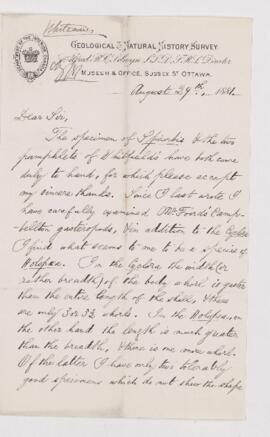 Whiteaves
GEOLOGICAL & NATURAL HISTORY SURVEY
Alfred R. C. Selwyn LL.D. F.R.S. Director
MUSEUM & OFFICE, SUSSEX ST OTTAWA.
August 29th, 1881.
Dear Sir,
The specimen of & the two
pamphlets of Whitfield's have both come
duly to hand, for which please accept
my sincere thanks. Since I last wrote I
have carefully examined Mr. Foord's Camp-
bellton gasteropods, & in addition to the
I find what seems to me to be a species of
Holopea. In the the width (or
rather breadth) of the body whorl is greater
than the entire length of the shell, & there
are only 3 or 3½ whorls. In the Holopea, on
the other hand the length is much greater
than the breadth, & there is one more whorl.
Of the latter I have only two tolerably
good specimens which do not shew the shape